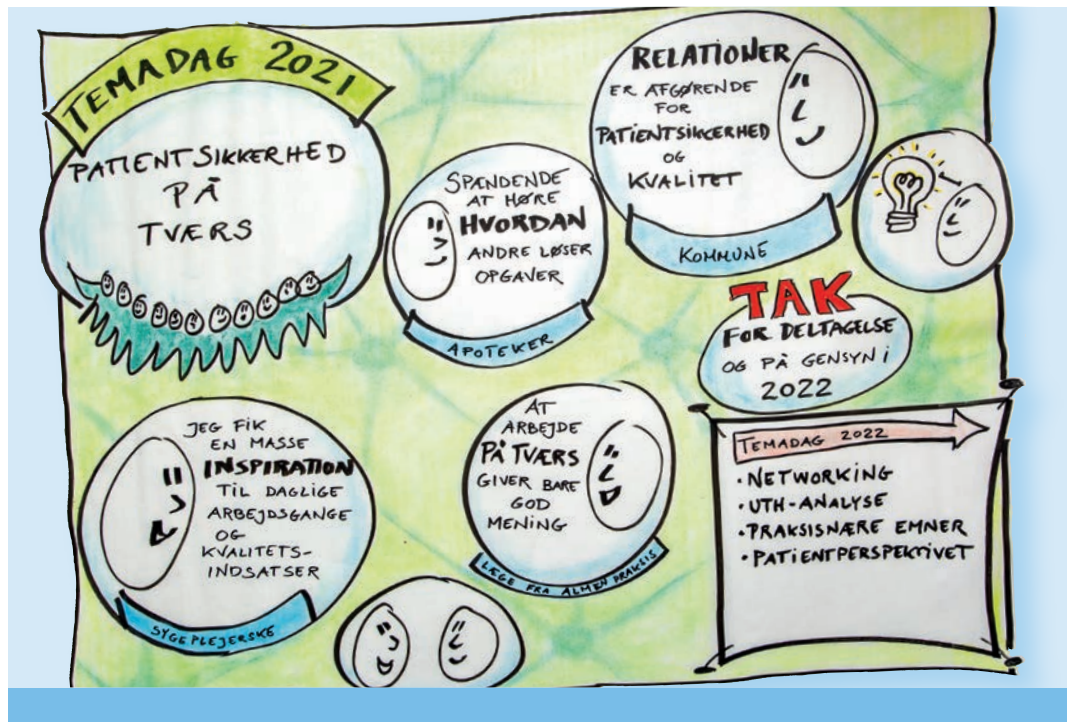 TEMADAG 2021
PATIENTSIKKERHED
PÅ
TVÆRS
SPÆNDENDE
AT HØRE
HVORDAN
ANDRE LØSER
OPGAVER
APOTEKER
RELATIONER
ER AFGØRENDE
FOR
PATIENTSIKKERHED
OG
KVALITET
KOMMUNE
TAK
FOR DELTAGELSE
OG PÅ GENSYN I
2022
JEG FIK
EN MASSE
INSPIRATION
TIL DAGLIGE
ARBEJDSGANGE
OG
KVALITETS-
INDSATSER
SYGEPLEJERSKE
AT
ARBEJDE
PÅ TVÆRS
GIVER BARE
GOD
MENING
LÆGE FRA ALMEN PRAKSIS
TEMADAG 2022
• NETWORKING
• UTH-ANALYSE
• PRAKSISNÆRE EMNER
• PATIENTPERSPEKTIVET